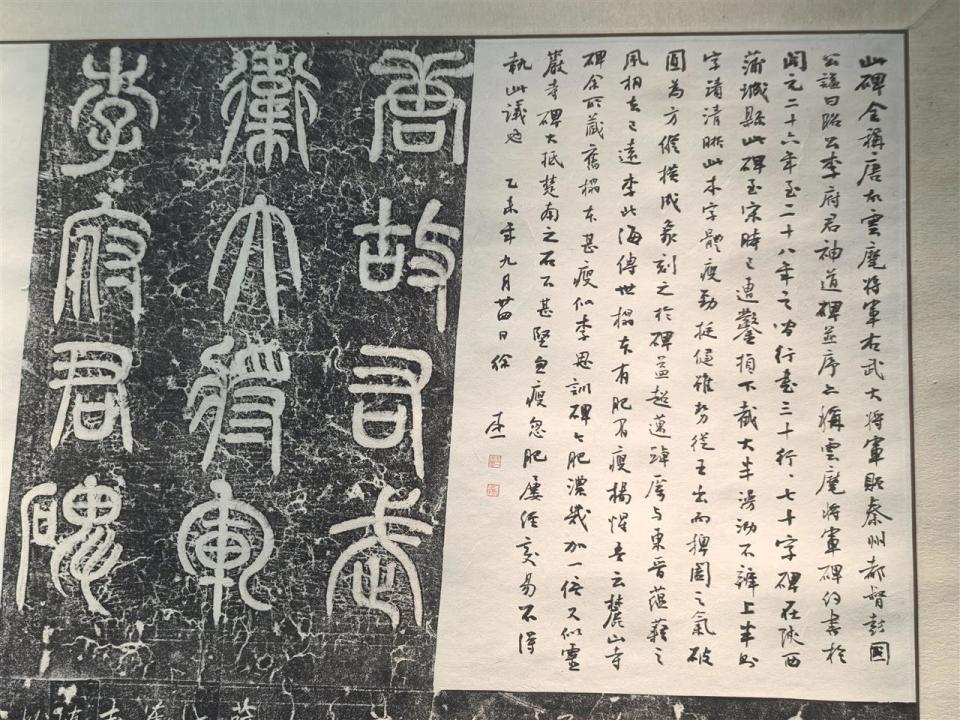 此碑全稱唐故雲麾將軍右武大將軍贈秦州都督彭國
公諡曰昭公李府君神道碑並序亦稱雲麾將軍碑約書於
開元二十六年至二十八年之間行書三十行七十字碑在陝西
蒲城縣此碑至宋時已遭鑿損下截大半漫泐不辨上半則
字蹟清晰此本字體瘦勁挺健雖勢從王出而擺圓之氣破
圓為方縱橫成象刻之於碑益超邁踔厲与東晉蘊藉之
風相去已遠李北海傳世榻本有肥有瘦楊惺吾云麓山寺
碑余所藏舊榻本甚瘦似李思訓碑之肥濃幾加一倍又似靈
巖寺碑大抵楚南之石不甚堅忽瘦忽肥屢經交易不得
執此議也 乙未年九月廿四日徐
唐故右武
衛大將軍
李府君碑